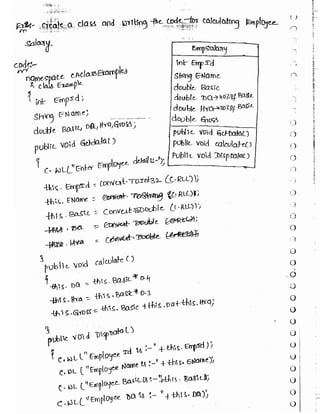 Ex:- create a class and writing the code for calculating Employee
Salary.
EmpSalary
int EmpId
String EName
double Basic
double DA→40% of Basic
double Hra→30% of Basic
double Gross
public void GetData()
public void calculate()
public void DispData()
code:-
namespace cAclassExamples
{ class Example
{
int EmpId;
String EName;
double Basic, DA, Hra, Gross;
public void GetData()
{
C.WL("Enter Employee details:-");
this.EmpId = Convert.ToInt32(C.RL());
this.EName = C.RL();
this.Basic = Convert.ToDouble(C.RL());
this.DA = Convert.ToDouble
this.Hra = Convert.ToDouble
}
public void calculate()
{
this.DA = this.Basic * 0.4
this.Hra = this.Basic * 0.3
this.Gross = this.Basic + this.DA + this.Hra;
}
public void DispData()
{
C.WL("Employee Id is :-" + this.EmpId);
C.WL("Employee Name is :-" + this.EName);
C.WL("Employee Basic is :-" + this.Basic);
C.WL("Employee DA is :- " + this.DA);